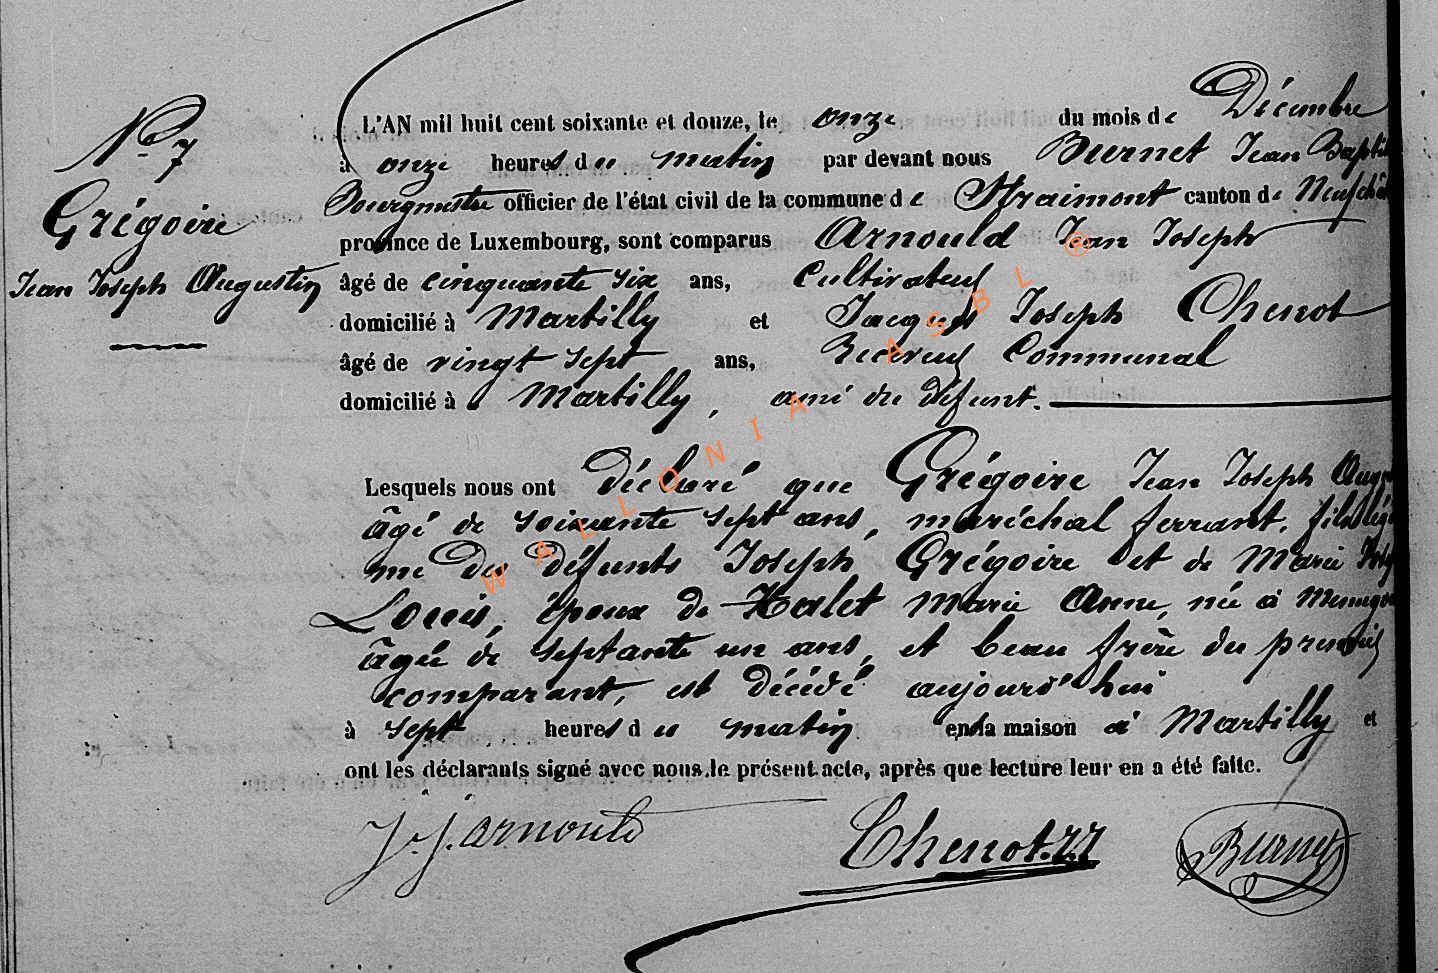 N° 7
Grégoire
Jean Joseph Augustin
L'AN mil huit cent soixante et douze, le onze du mois de Décembre
à onze heures du matin par devant nous Burnet Jean Baptis
Bourgmestre officier de l'état civil de la commune de Straimont canton de Neufchâ
province de Luxembourg, sont comparus Arnould Jean Joseph
âgé de cinquante six ans, Cultivateur
domicilié à Martilly et Jacques Joseph Chenot
âgé de vingt sept ans, Receveur Communal
domicilié à Martilly, ami du défunt.
Lesquels nous ont déclaré que Grégoire Jean Joseph Augu
âgé de soixante sept ans, maréchal ferrant, fils légi
me des défunts Joseph Grégoire et de Marie
Louis, époux de Halet Marie Anne, née à
âgée de septante un ans, et beau frère du premier
comparant, est décédé aujourd'hui
à sept heures du matin en sa maison à Martilly et
ont les déclarants signé avec nous le présent acte, après que lecture leur en a été faite.
J. J. Arnould
Chenot. J.J
Burnet
WALLONIA ASBL ®